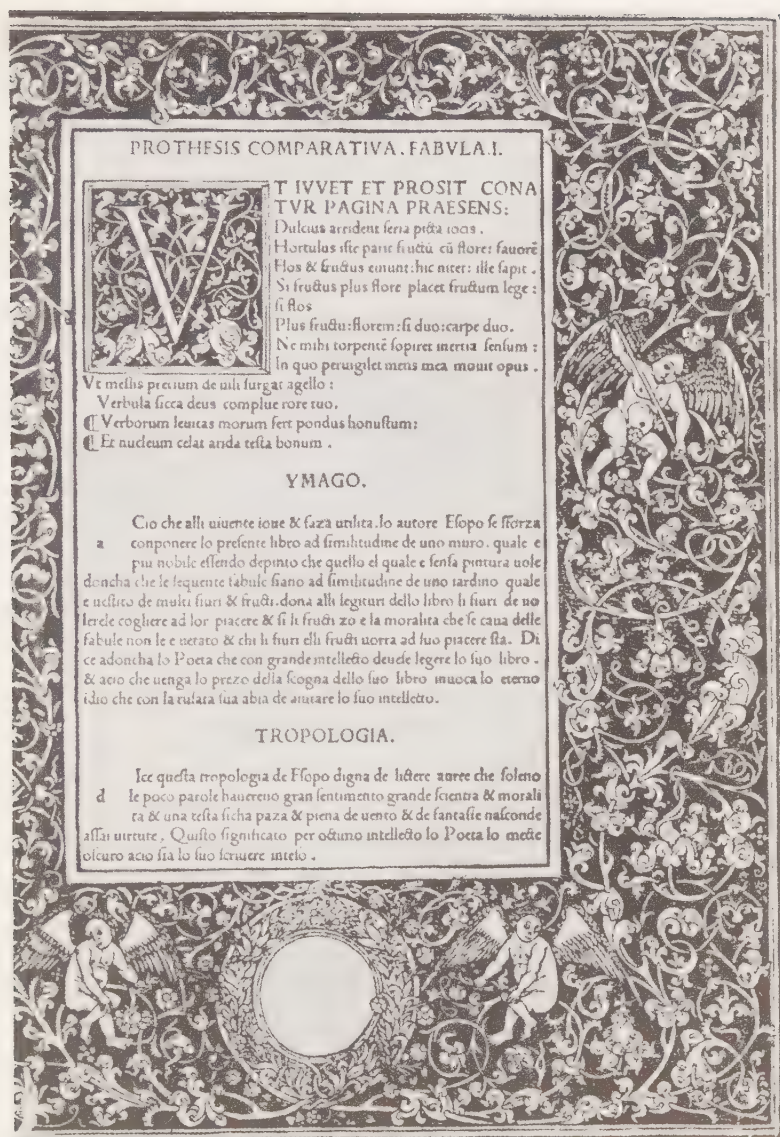 PROTHESIS COMPARATIVA. FABVLA. I.
VT IVVET ET PROSIT CONA
TVR PAGINA PRAESENS:
Dulcius arrident seria picta iocis.
Hortulus iste parit fructũ cũ flore: fauorẽ
Flos & fructus emunt: hic nitet: ille sapit.
Si fructus plus flore placet fructum lege:
si flos
Plus fructu: florem: si duo: carpe duo.
Ne mihi torpentẽ sopiret inertia sensum:
In quo peruigilet mens mea mouit opus.
Vt messis precium de uili surgat agello:
Verbula sicca deus complue rore tuo.
¶ Verborum leuitas morum fert pondus honustum:
¶ Et nucleum celat arida testa bonum.
YMAGO.
Cio che alli uiuente ioue & faza utilita. lo autore Esopo se sforza
a conponere lo presente libro ad similitudine de uno muro. quale e
piu nobile essendo depinto che quello el quale e sensa pintura uole
doncha che le sequente fabule siano ad similitudine de uno iardino quale
e uestito de multi fiuri & fructi. dona alli legituri dello libro li fiuri de uo
lerele cogliere ad lor piacere & si li fructi zo e la moralita che se caua delle
fabule non le e uetato & chi li fiuri elli fructi uorra ad suo piacere sta. Di
ce adoncha lo Poeta che con grande intellecto deuese legere lo suo libro.
& acio che uenga lo prezo della scogna dello suo libro inuoca lo eterno
idio che con la rusata sua abia de aiutare lo suo intellecto.
TROPOLOGIA.
Ice questa tropologia de Esopo digna de lictere auree che soleno
d le poco parole hauereno gran sentimento grande scientia & morali
ta & una testa sicha paza & piena de uento & de fantasie nasconde
assai uirtute. Quisto significato per octimo intellecto lo Poeta lo mecte
obscuro acio sia lo suo scriuere inteso.